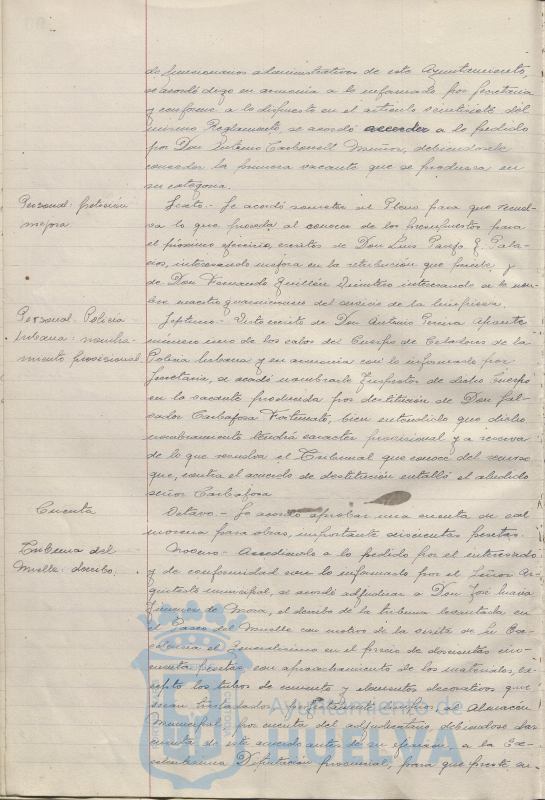 de funcionarios administrativos de este Ayuntamiento,
se acordó digo en armonía a lo informado por Secretaría
y conforme a lo dispuesto en el artículo veintisiete del
mismo Reglamento, se acordó acceder a lo pedido
por Don Antonio Carbonell Muñoz, debiéndosele
conceder la primera vacante que se produzca en
su categoría.
Personal: petición
mejora.
Sexto.- Se acordó someter al Pleno para que resuel-
va lo que proceda al conocer de los presupuestos para
el próximo ejercicio, escritos de Don Luis y Pala-
cios, interesando mejora en la retribución que percibe, y
de Don Fernando Guillén Quintero interesando se le nom-
bre maestro guarnicionero del servicio de la limpieza.
Personal. Policía
Urbana: nombra-
miento provisional
Septimo.- Visto escrito de Don Antonio Pereira Aparte
número uno de los cabos del Cuerpo de Celadores de la
Policía Urbana y en armonía con lo informado por
Secretaría, se acordó nombrarle Inspector de dicho Cuerpo
en la vacante producida por destitución de Don Sal-
vador Carbafosa Fortunato, bien entendido que dicho
nombramiento tendrá caracter provisional y a reserva
de lo que resuelva el Tribunal que conoce del recurso
que, contra el acuerdo de destitución entabló el aludido
señor Carbafosa
Cuenta
Octavo.- Se acordó aprobar una cuenta de cal
morena para obras, importante doscientas pesetas.
Tribuna del
Muelle: derribo.
Noveno.- Accediendo a lo pedido por el interesado
y de conformidad con lo informado por el Señor Ar-
quitecto municipal, se acordó adjudicar a Don José María
Jimenez de Mora, el derribo de la tribuna levantada en
el Paseo del Muelle con motivo de la visita de Su Ex-
celencia el Generalísimo en el precio de doscientas cin-
cuenta pesetas, con aprovechamiento de los materiales, ex-
cepto los tubos de cemento y elementos decorativos que
seran trasladados al Almacén
Municipal por cuenta del adjudicatario debiéndose dar
cuenta de este acuerdo antes de su ejecución, a la Ex-
celentísima Diputación provincial, para que preste su
Ayuntamiento de
HUELVA